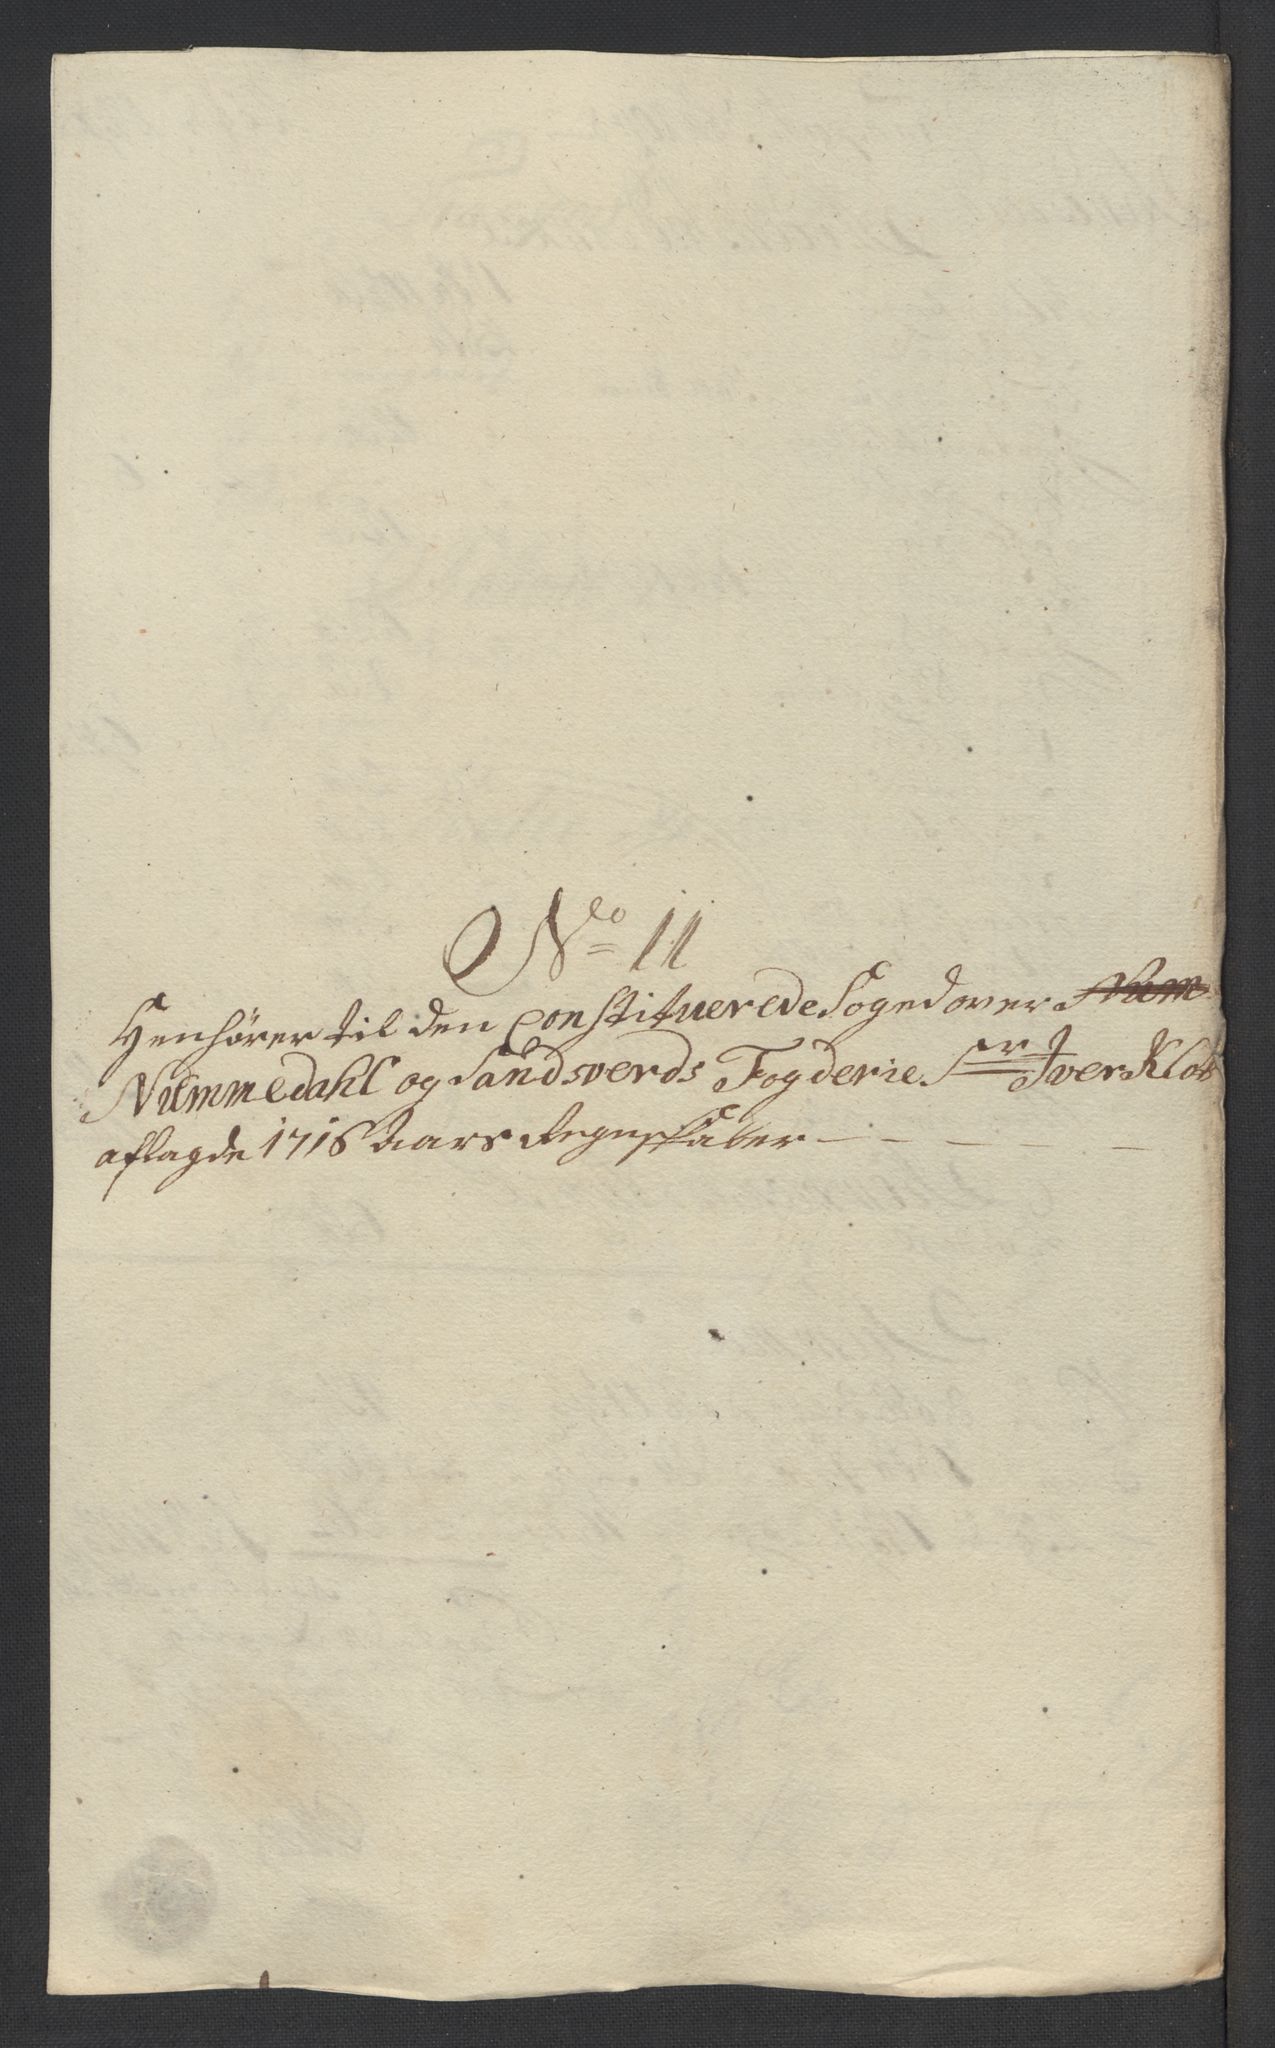 No 11
Henhörer til den Constituerede Foged over Num
Nummedahl og Sandsverds Fogderie Sr Iver Klot
aflagde 1716 Aars Regnskaber